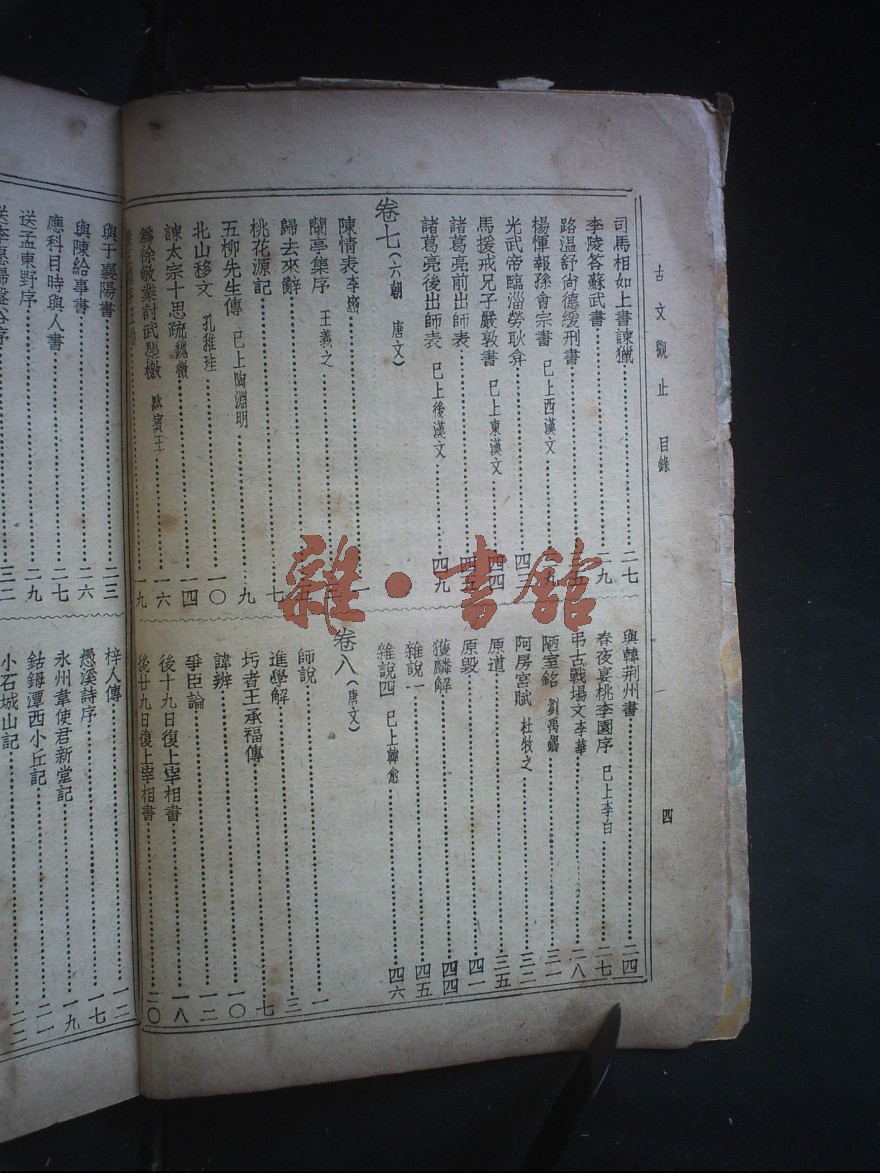 古文觀止 目錄 四
司馬相如上書諫獵 二七
李陵答蘇武書 二九
路溫舒尚德緩刑書
楊惲報孫會宗書 已上西漢文
光武帝臨淄勞耿弇 四二
馬援戒兄子嚴敦書 已上東漢文 四四
諸葛亮前出師表 四五
諸葛亮後出師表 已上後漢文 四九
卷七(六朝 唐文)
陳情表 李密 一
蘭亭集序 王羲之
歸去來辭
桃花源記 七
五柳先生傳 已上陶淵明 九
北山移文 孔稚珪 一〇
諫太宗十思疏 魏徵 一四
爲徐敬業討武曌檄 駱賓王 一六
一九
與韓荊州書 二四
春夜宴桃李園序 已上李白 二七
弔古戰場文 李華 二八
陋室銘 劉禹錫 三一
阿房宮賦 杜牧之 三二
原道 三五
原毀 四一
獲麟解 四四
雜說一 四五
雜說四 已上韓愈 四六
卷八(唐文)
師說 一
進學解 三
圬者王承福傳 七
諱辨 一〇
爭臣論 一二
後十九日復上宰相書 一八
後廿九日復上宰相書 二〇
與于襄陽書 二三
與陳給事書 二六
應科目時與人書 二七
送孟東野序 二九
送李愿歸盤谷序 三二
梓人傳 一二
愚溪詩序 一七
永州韋使君新堂記 一九
鈷鉧潭西小丘記 二一
小石城山記 二二
雜·書館